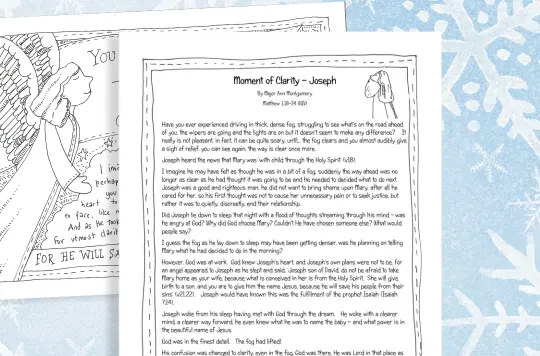 YOU
I ima
perhap
you
heart to
to face, like
And as he took
for utmost clarit
FOR HE WILL SA
Moment of Clarity – Joseph
By Major Ann Montgomery
Matthew 1:18-24 (NIV)
Have you ever experienced driving in thick, dense fog, struggling to see what's on the road ahead
of you, the wipers are going and the lights are on but it doesn't seem to make any difference? It
really is not pleasant, in fact, it can be quite scary, until... the fog clears and you almost audibly give
a sigh of relief, you can see again, the way is clear once more.
Joseph heard the news that Mary was 'with child through the Holy Spirit' (v18).
I imagine he may have felt as though he was in a bit of a fog, suddenly the way ahead was no
longer as clear as he had thought it was going to be and he needed to decided what to do next.
Joseph was a good and righteous man, he did not want to bring shame upon Mary, after all he
cared for her, so his first thought was not to cause her unnecessary pain or to seek justice, but
rather it was to quietly, discreetly, end their relationship.
Did Joseph lie down to sleep that night with a flood of thoughts streaming through his mind – was
he angry at God? Why did God choose Mary? Couldn't He have chosen someone else? What would
people say?
I guess the fog as he lay down to sleep may have been getting denser, was he planning on telling
Mary what he had decided to do in the morning?
However, God was at work. God knew Joseph's heart, and Joseph's own plans were not to be, for
an angel appeared to Joseph as he slept and said, 'Joseph son of David, do not be afraid to take
Mary home as your wife, because what is conceived in her is from the Holy Spirit. She will give
birth to a son, and you are to give him the name Jesus, because he will save his people from their
sins' (v21,22). Joseph would have known this was the fulfilment of the prophet Isaiah (Isaiah
7:14).
Joseph woke from his sleep having met with God through the dream. He woke with a clearer
mind, a clearer way forward, he even knew what he was to name the baby – and what power is in
the beautiful name of Jesus.
God was in the finest detail. The fog had lifted!
His confusion was changed to clarity, even in the fog, God was there. He was Lord in that place as